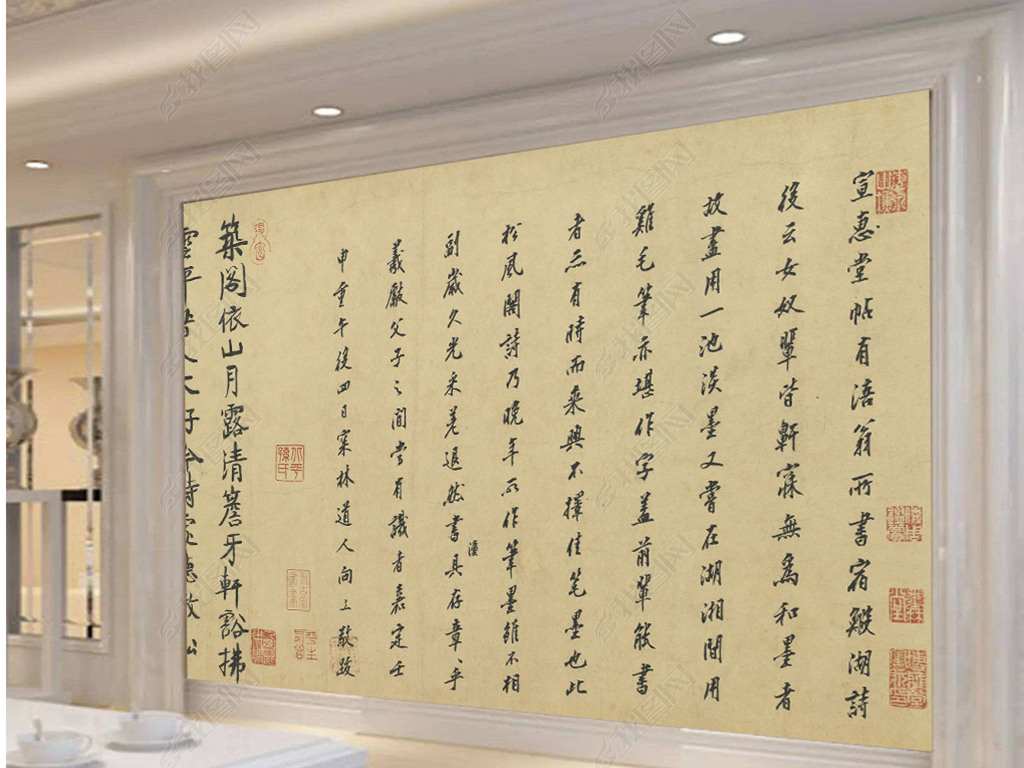 宣惠堂帖有涪翁所書宿湖詩
後云女奴輩皆鼾寐無為和墨者
故盡用一池淡墨又嘗在湖湘間用
雞毛筆亦堪作字蓋前輩能書
者亦有時而乘興不擇佳筆墨也此
松風閣詩乃晚年所作筆墨雖不相
副歲久光采差退然書具存章〻乎
羲獻父子之間當有識者嘉定壬
申重午後四日林道人向敬跋
築閣依山月露清簷牙軒豁拂